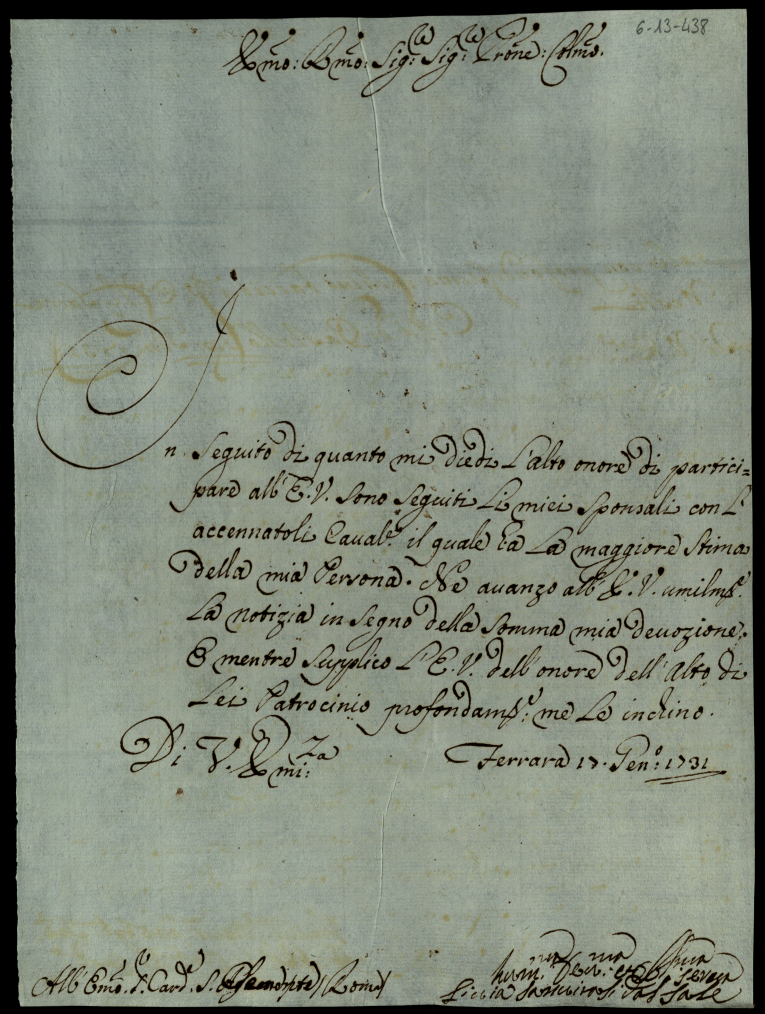 6-13-438
Emo: Rmo: Sig:r Sig:r Prone: Colmo.
In Seguito di quanto mi diedi L'alto onore di partici=
pare all'E.V. sono seguiti Li miei sponsali con L'
accennatoli Caval:e il quale ha La maggiore stima
della mia Persona. Ne avanzo all'E.V. umilm:e
La notizia in segno della somma mia devozione.
E mentre supplico L'E.V. dell'onore dell'Alto di
Lei Patrocinio profondam:e me Le inchino.
Di V. Emi:za Ferrara 17. Gen:o 1731
All'Emo. S. Card:e S. (Roma)